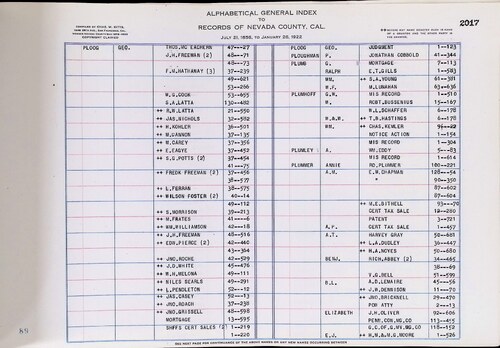 ALPHABETICAL GENERAL INDEX
TO
RECORDS OF NEVADA COUNTY, CAL.
JULY 21, 1856, TO JANUARY 28, 1922
COPYRIGHT CLAIMED
2017
PLOOG GEO. THOS. MC EACHERN 47---27
J.H.FREEMAN (2) 48---71
48---73
F.W.HATHAWAY (3) 37--239
49--621
53--266
W.G.COOK 53--655
D.A.LATTA 130--482
++ R.W.LATTA 21--556
++ JAS.NICHOLS 32--582
++ H.KOHLER 36--501
++ M.GANNON 37--135
++ W.CAREY 37--356
++ E.EAGYE 37--452
++ S.G.POTTS (2) 37--454
41---75
++ FREDK FREEMAN (2) 37--456
38--577
++ L.FERRAN 38--575
++ WILSON FOSTER (2) 40---14
49--112
++ S.MORRISON 39--213
++ M.FRATES 41----6
++ WM.WILLIAMSON 42---18
++ J.H.FREEMAN 48--516
++ EDW.PIERCE (2) 42--440
43--364
++ JNO.ROCHE 42--529
++ J.D.WHITE 45--476
++ M.H.MELONA 48--111
++ NILES SEARLS 49--291
++ L.PENDLETON 52---12
++ JAS.CASEY 52---13
++ JNO.ROACH 37--238
++ JNO.GRISSELL 48--598
MORTGAGE 13--595
SHFFS CERT SALES (2) 1--219
1--220
PLOOG GEO. JUDGMENT 1--123
PLOUGHMAN P. JONATHAN GOBBOLD 41--344
PLUMB G. MORTGAGE 7--113
RALPH E.T.GILLS 1--583
WM. ++ S.A.YOUNG 61--381
W.F. M.LUNAHAN 63--636
PLUMHOFF G.W. MIS RECORD 1--510
W. ROBT.BUSSENIUS 15--167
W.L.SCHAFFER 6--178
W.A.W. ++ T.B.HASTINGS 6--178
WM. ++ CHAS.KEMLER
NOTICE ACTION 1--154
MIS RECORD 1--304
PLUMLEY A. WM.EDDY 5---83
MIS RECORD 1--604
PLUMMER ANNIE RD.PLUMMER 180--221
A.M. E.W.CHAPMAN 128---54
" 90--350
87--602
87--604
++ H.E.BITHELL
CERT TAX SALE 12--280
PATENT 3--721
A.P. CERT TAX SALE 1--457
A.T. HARVEY GRAY 50--681
++ L.A.DUDLEY 36--447
++ M.A.NOYES 50--680
BENJ. RICH.ABBEY (2) 34--465
38---69
Y.G.BELL 51--599
R.L. A.D.LEMAIRE 45---56
++ J.W.DENNISON 11---70
++ JNO.BRICKNELL 29--470
POW ATTY 2---13
ELIZABETH J.H.OLIVER 92--606
PENN.CON.MG.CO 113--455
G.C.OF G.MV.BG.CO 118--152
E.J. ++ H.MA.&M.G.MOORE 1--526